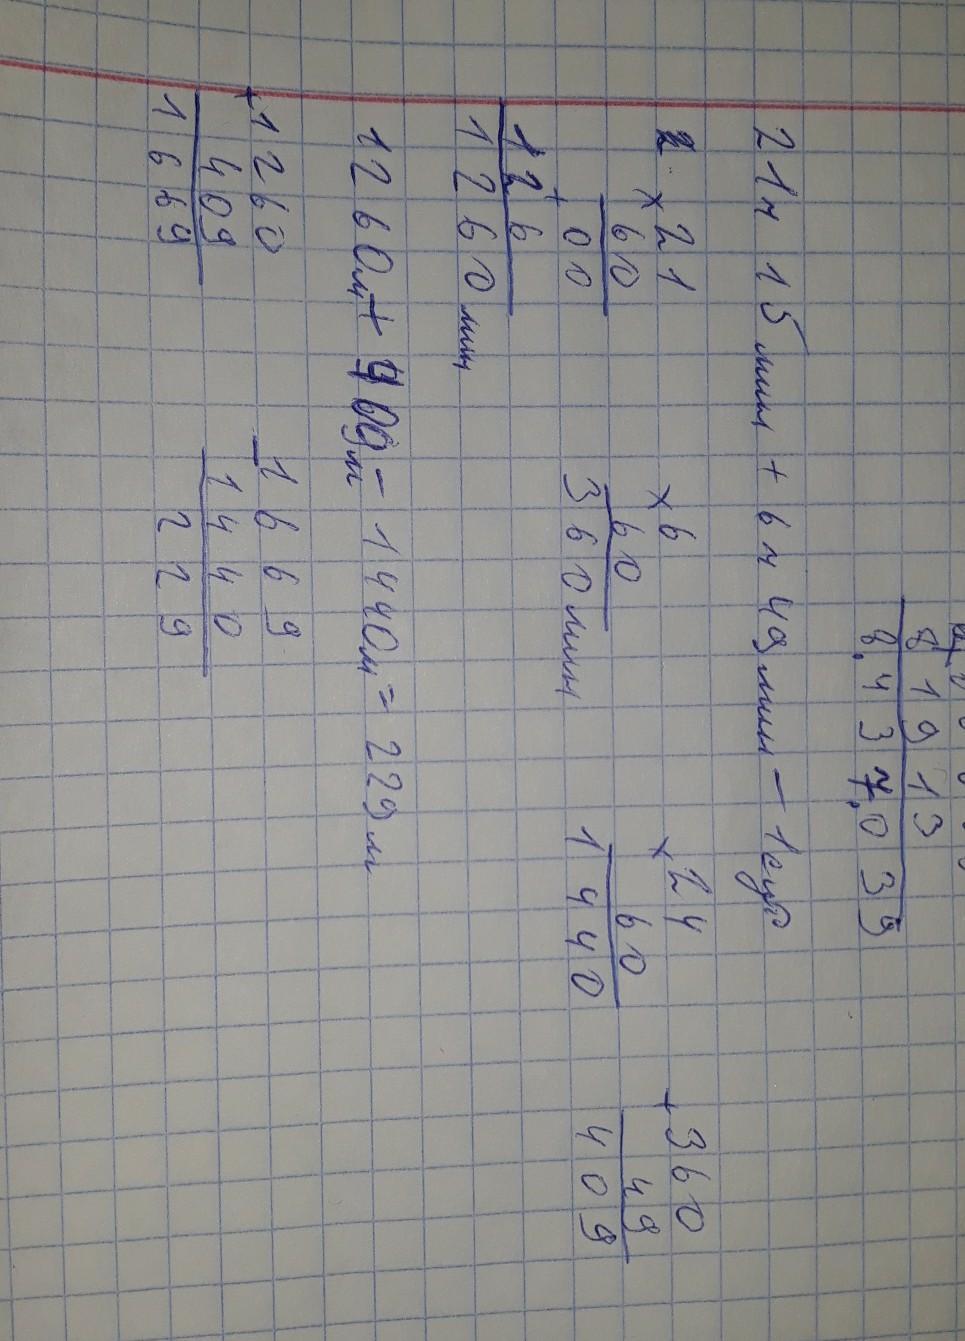 8 1 9 1 3
8. 4 3 7. 0 3 9
21ч 15 мин + 6ч 49 мин - 1 сут
× 21 × 6 × 24 + 360
60 60 60 49
00 360 мин 1440 409
+
126
1260 мин
1260м + 409м - 1440м = 229м
+ 1260 - 1669
409 1440
1669 229